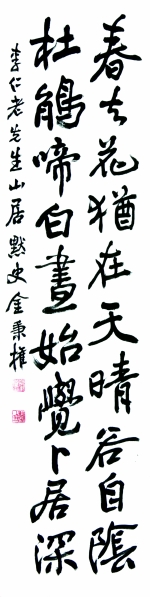 春去花猶在天晴谷自陰
杜鵑啼白晝始覺卜居深
李仁老先生山居 默史金秉權